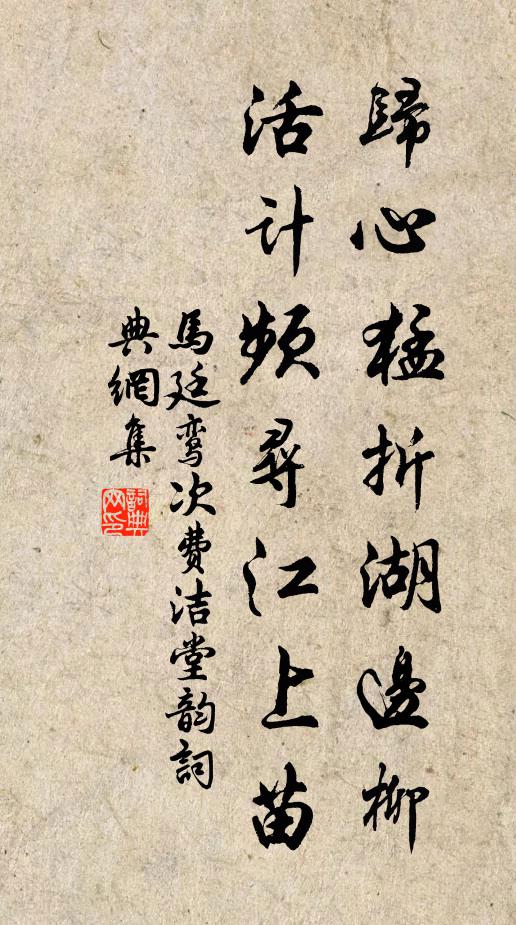 歸心猛折湖邊柳
活計頻尋江上苗
馬廷鸾次费洁堂韵詞
典網集
詞典网印